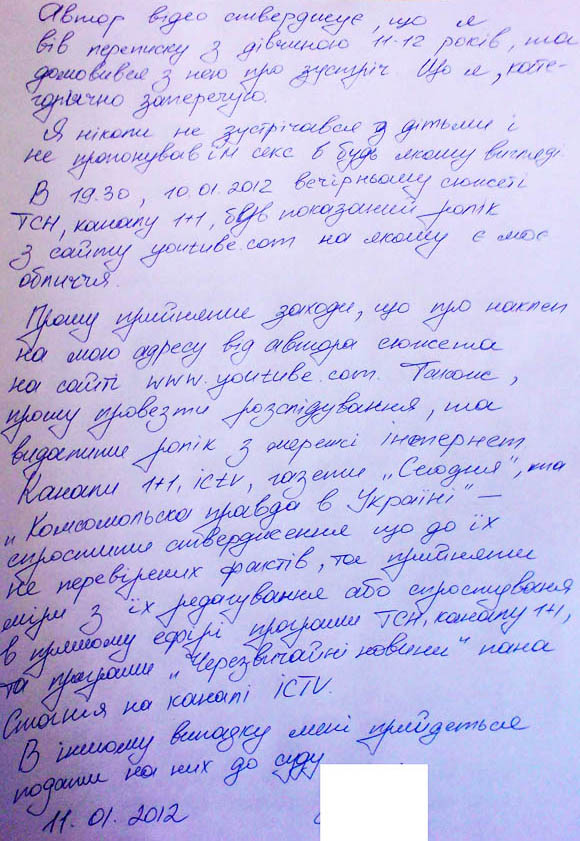 Автор відео стверджує, що я
вів переписку з дівчиною 11-12 років, та
домовився з нею про зустріч. Що я, кате-
горично заперечую.
Я ніколи не зустрічався з дітьми і
не пропонував їм секс в будь якому вигляді.
В 19.30, 10.01.2012 вечірньому сюжеті
ТСН, каналу 1+1, був показаний ролік
з сайту youtube.com на якому є моє
обличчя.
Прошу прийняти заходи, що про наклеп
на мою адресу від автора сюжета
на сайті www.youtube.com. Також,
прошу провезти розслідування, та
видалити ролік з мережі інтернет
Канали 1+1, ictv, газети „Сегодня", та
„Комсомольска правда в Україні" –
спростити ствердження що до їх
не перевірених фактів, та прийняти
міри з їх редагування або спростування
в прямому ефірі програми ТСН, каналу 1+1,
та програми „Черезвичайні новини" пана
Стогнія на каналі ICTV.
В іншому випадку мені прийдеться
подати на них до суду
11.01.2012